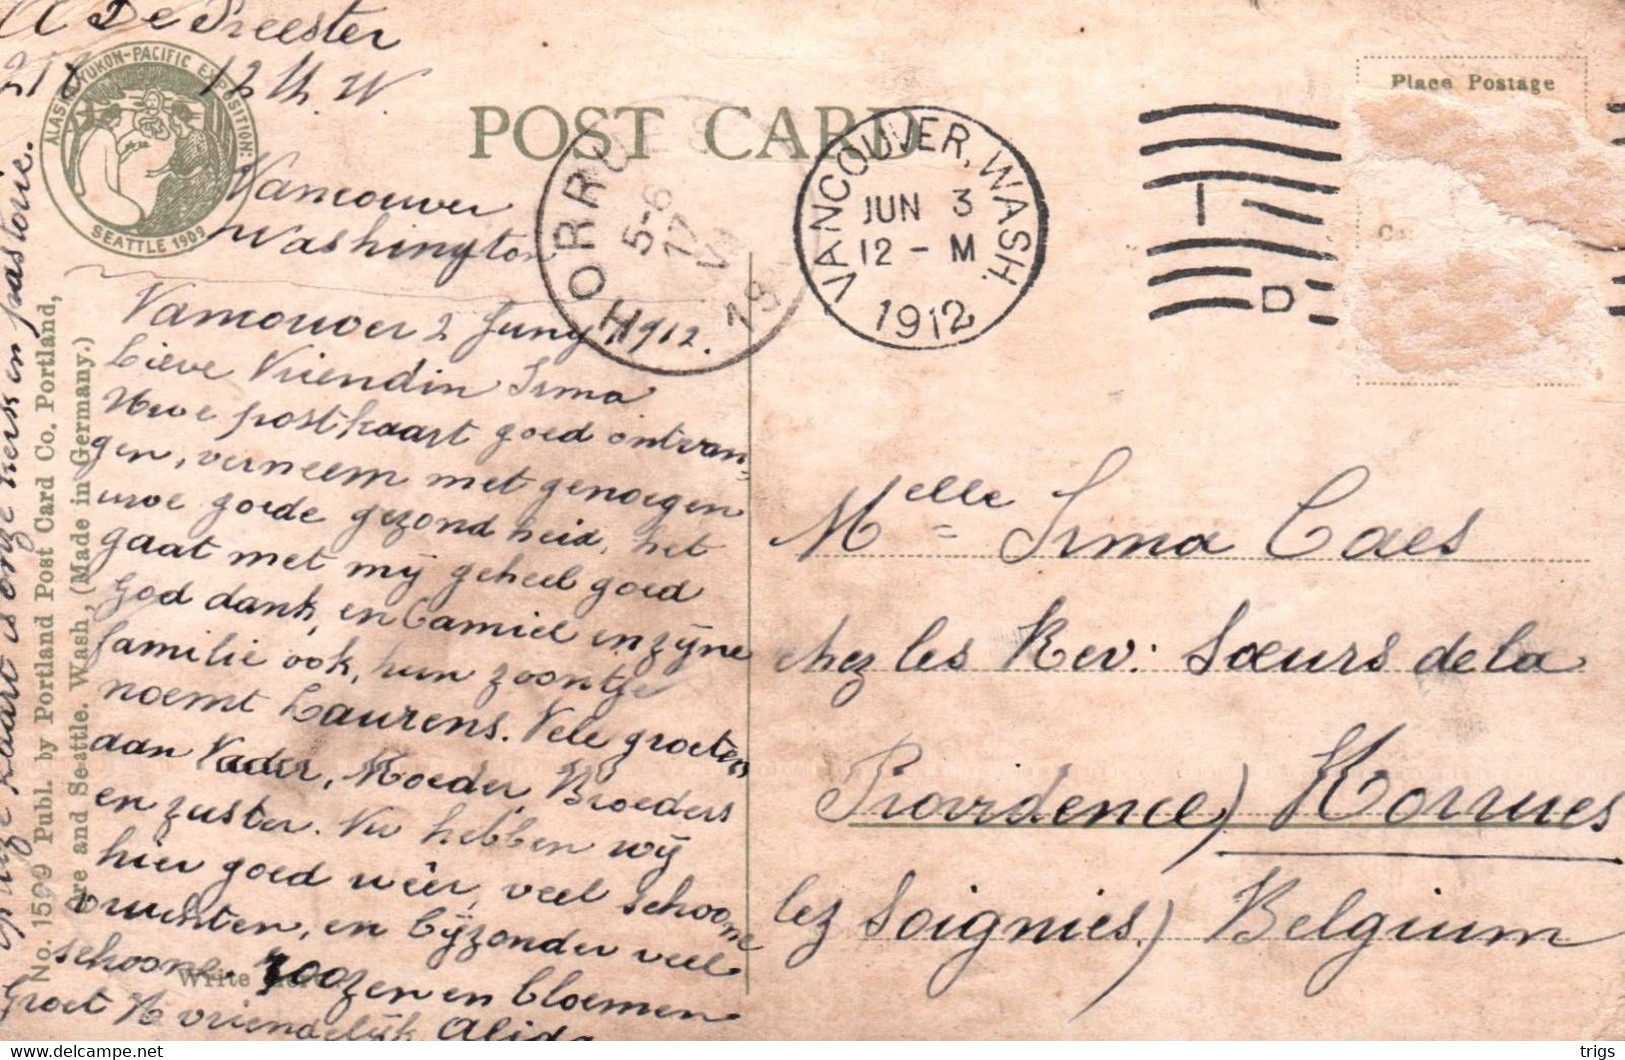 A De Preester
12th. W.
Vancouver
Washington
Vancouver 2 Juny, 1912.
Lieve Vriendin Irma
Uwe postkaart goed ontvan-
gen, verneem met genoegen
uwe goede gezondheid, het
gaat met mij geheel goed
God dank, en Camiel en zijne
familie ook, hun zoontje
noemt Laurens. Vele groeten
aan Vader, Moeder, Broeders
en zuster. Nu hebben wij
hier goed wêer, veel schoone
vruchten, en bijzonder veel
schoone roozen en bloemen
Groet U vriendelijk Alida
kaart is onze mersen pastorie.
ALASKA YUKON-PACIFIC EXPOSITION:
SEATTLE 1909
No. 1599 Publ. by Portland Post Card Co. Portland,
Ore and Seattle. Wash, (Made in Germany.)
Write
POST CARD
HORRUES
5-6
17
VI
19
VANCOUVER, WASH.
JUN 3
12-M
1912
Place Postage
Melle Irma Caes
chez les Rev: Sœurs de la
Providence) Horrues
lez Soignies) Belgium
delcampe.net
trigs